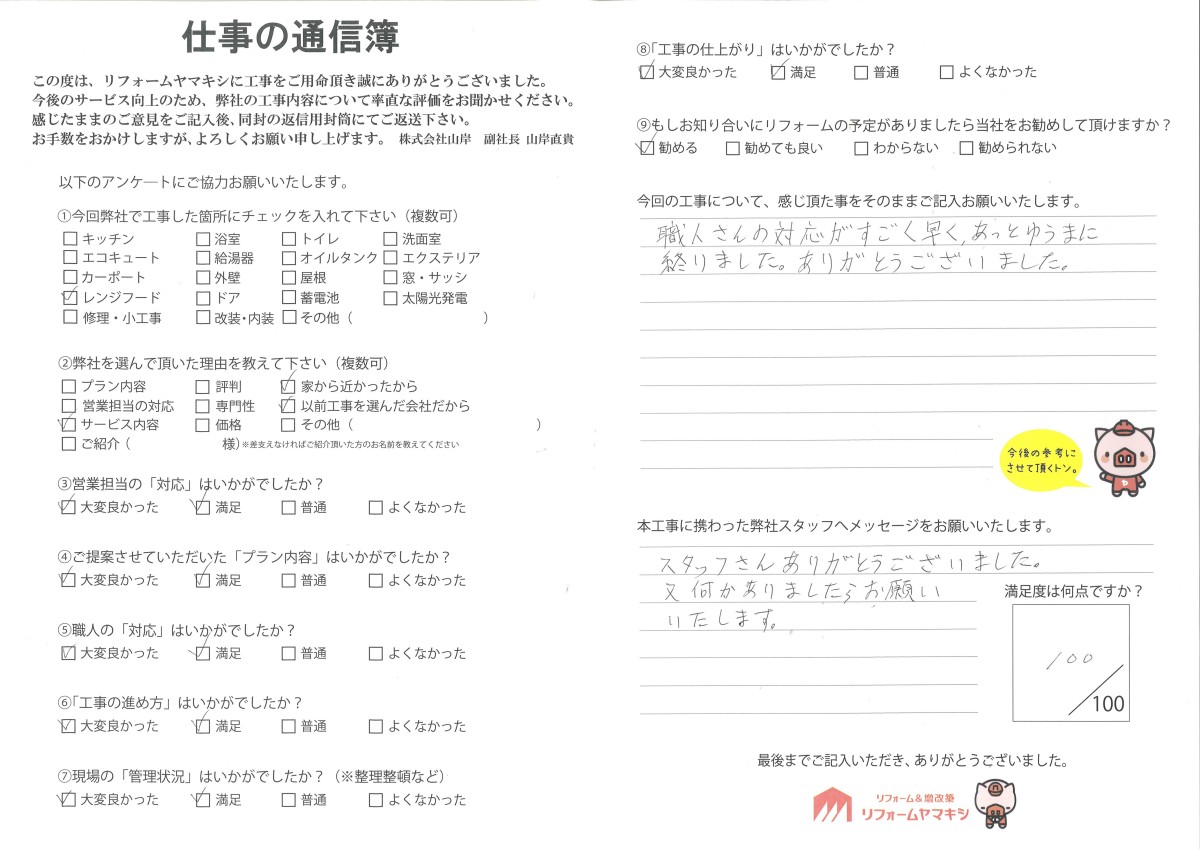 仕事の通信簿
この度は、リフォームヤマキシに工事をご用命頂き誠にありがとうございました。
今後のサービス向上のため、弊社の工事内容について率直な評価をお聞かせください。
感じたままのご意見をご記入後、同封の返信用封筒にてご返送下さい。
お手数をおかけしますが、よろしくお願い申し上げます。 株式会社山岸 副社長 山岸直貴
以下のアンケートにご協力お願いいたします。
①今回弊社で工事した箇所にチェックを入れて下さい（複数可）
□ キッチン □ 浴室 □ トイレ □ 洗面室
□ エコキュート □ 給湯器 □ オイルタンク □ エクステリア
□ カーポート □ 外壁 □ 屋根 □ 窓・サッシ
☑ レンジフード □ ドア □ 蓄電池 □ 太陽光発電
□ 修理・小工事 □ 改装・内装 □ その他（ ）
②弊社を選んで頂いた理由を教えて下さい（複数可）
□ プラン内容 □ 評判 ☑ 家から近かったから
□ 営業担当の対応 □ 専門性 ☑ 以前工事を選んだ会社だから
☑ サービス内容 □ 価格 □ その他（ ）
□ ご紹介（ 様）※差支えなければご紹介頂いた方のお名前を教えてください
③営業担当の「対応」はいかがでしたか？
☑ 大変良かった ☑ 満足 □ 普通 □ よくなかった
④ご提案させていただいた「プラン内容」はいかがでしたか？
☑ 大変良かった ☑ 満足 □ 普通 □ よくなかった
⑤職人の「対応」はいかがでしたか？
☑ 大変良かった ☑ 満足 □ 普通 □ よくなかった
⑥「工事の進め方」はいかがでしたか？
☑ 大変良かった ☑ 満足 □ 普通 □ よくなかった
⑦現場の「管理状況」はいかがでしたか？（※整理整頓など）
☑ 大変良かった ☑ 満足 □ 普通 □ よくなかった
⑧「工事の仕上がり」はいかがでしたか？
☑ 大変良かった ☑ 満足 □ 普通 □ よくなかった
⑨もしお知り合いにリフォームの予定がありましたら当社をお勧めして頂けますか？
☑ 勧める □ 勧めても良い □ わからない □ 勧められない
今回の工事について、感じ頂た事をそのままご記入お願いいたします。
職人さんの対応がすごく早く、あっとゆうまに
終りました。ありがとうございました。
今後の参考に
させて頂くトン。
本工事に携わった弊社スタッフへメッセージをお願いいたします。
スタッフさんありがとうございました。
又何かありましたらお願い
いたします。
満足度は何点ですか？
100
/100
最後までご記入いただき、ありがとうございました。
リフォーム＆増改築
リフォームヤマキシ